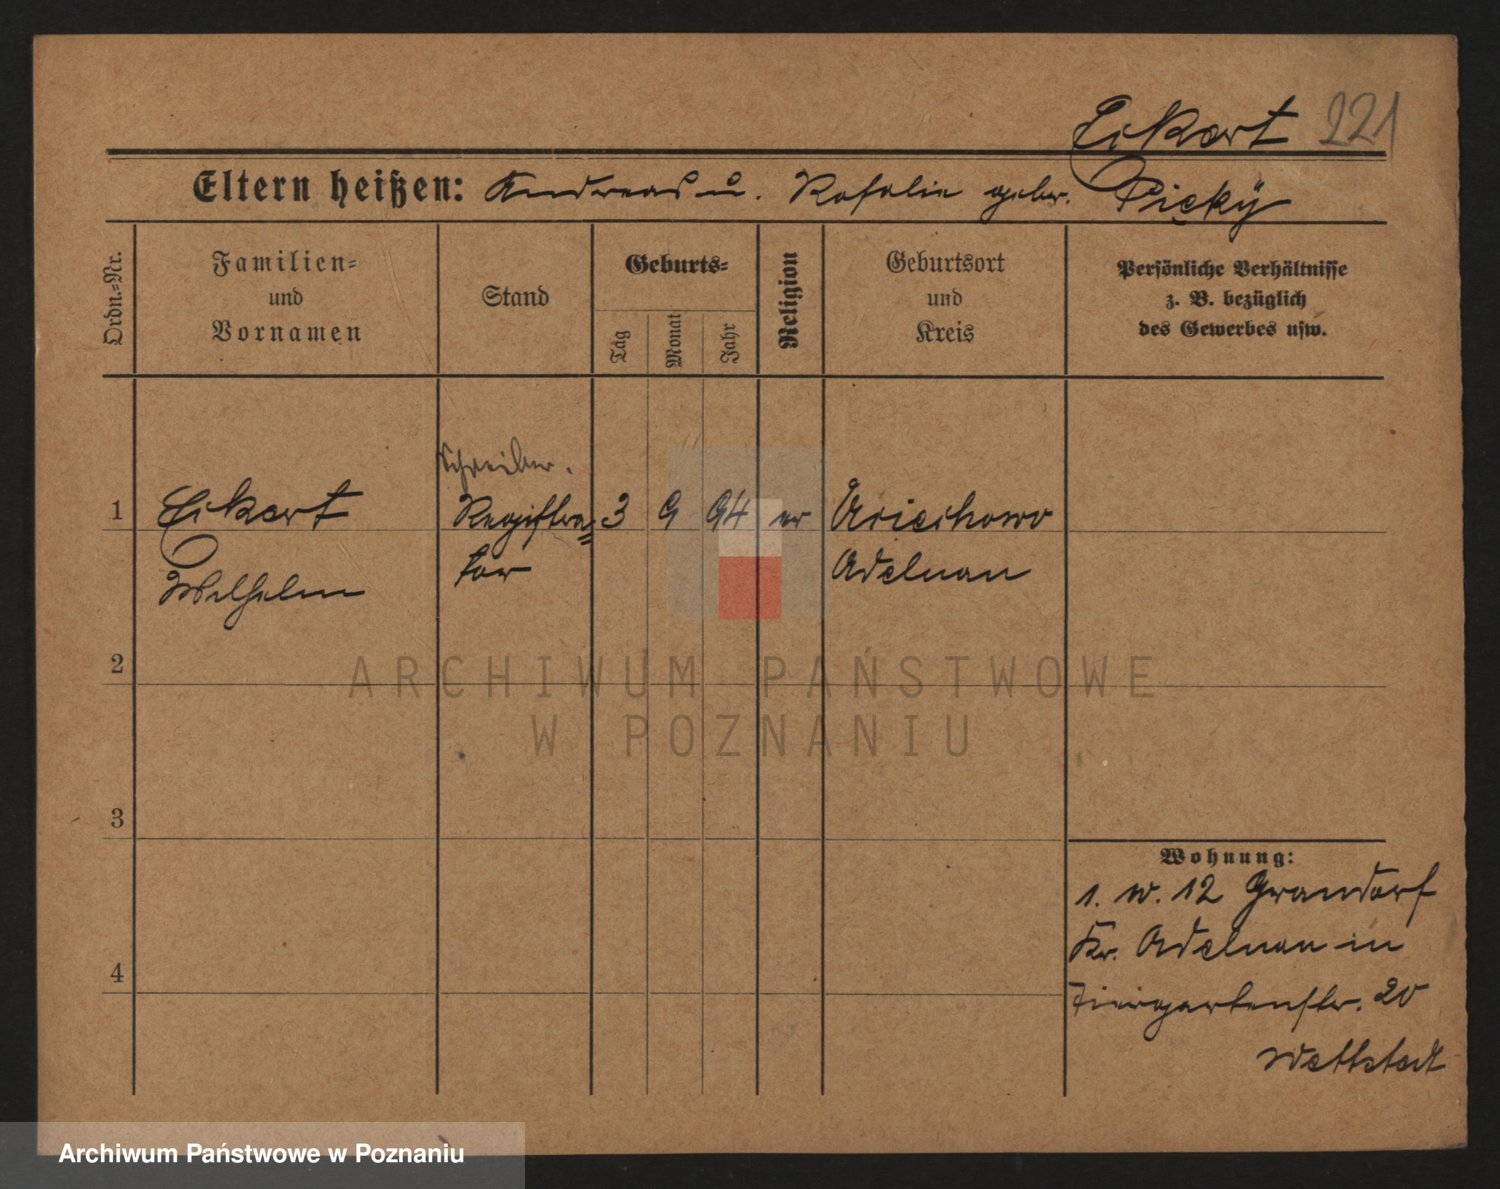 Eckart 221
Eltern heißen: Andreas u. Rosalie gebr. Picky
Ordn.-Nr.
Familien-
und
Vornamen
Stand
Geburts-
Tag
Monat
Jahr
Religion
Geburtsort
und
Kreis
Persönliche Verhältnisse
z. B. bezüglich
des Gewerbes usw.
Schreiber.
1 Eckart Registra= 3 9 94 ev
tor Adelnau
Wilhelm
2
ARCHIWUM PAŃSTWOWE
W POZNANIU
3
Wohnung:
1. 12 Grandorf
4
Kr. Adelnau in
Tiergartenstr. 20
Archiwum Państwowe w Poznaniu